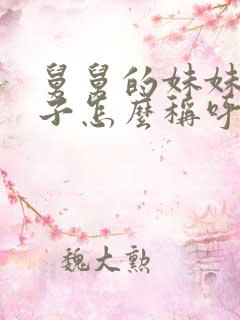 舅舅的妹妹
子怎麼稱呼
魏大勲